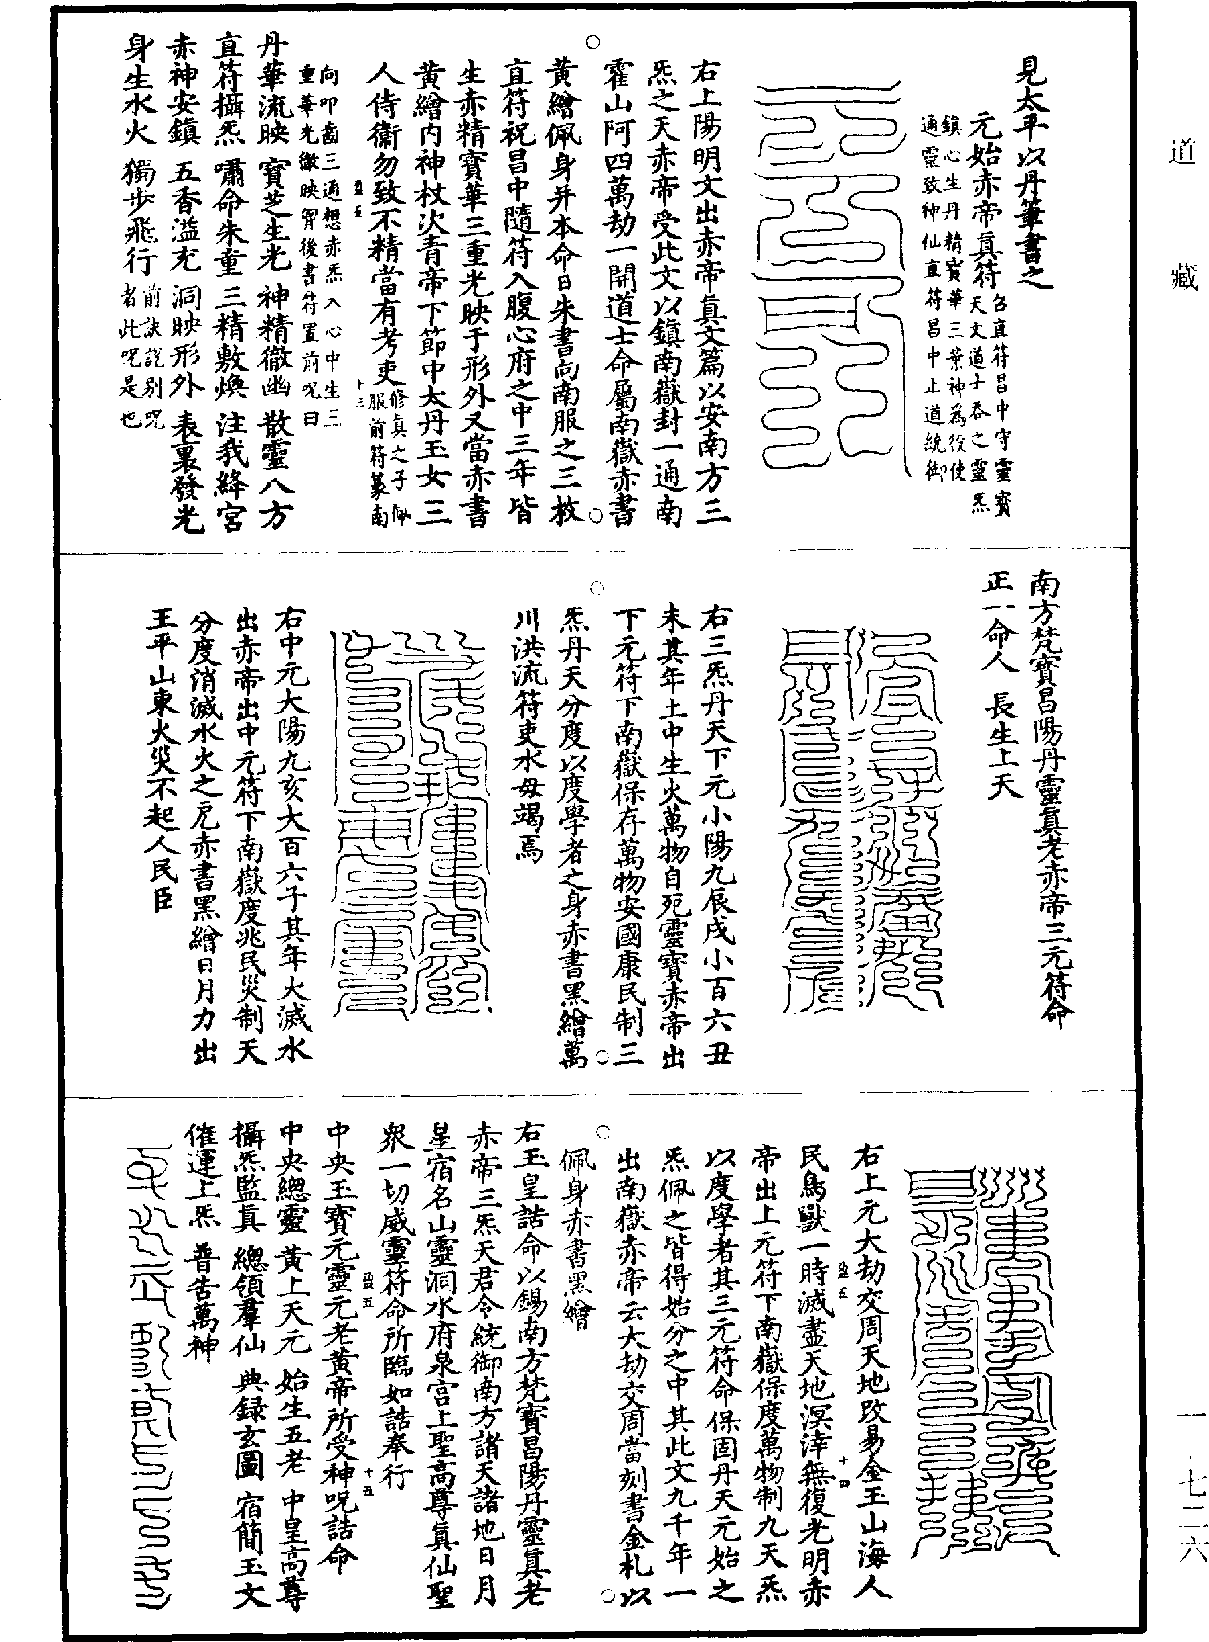 道藏
一七二六
見太平以丹筆書之
元始赤帝真符
召直符昌中守靈寶
天文道子吞之靈炁
鎮心生丹精寶華三葉神為役使
通靈致神仙直符昌中止道統御
右上陽明文出赤帝真文篇以安南方三
炁之天赤帝受此文以鎮南嶽封一通南
霍山阿四萬劫一開道士命屬南嶽赤書
黃繒佩身并本命日朱書向南服之三枚
直符祝昌中隨符入腹心府之中三年皆
生赤精寶華三重光映于形外又當赤書
黃繒內神杖次青帝下節中太丹玉女三
人侍衛勿致不精當有考吏
修真之子佩
服前符篆南
十三
向叩齒三通想赤炁入心中生三
重華光徹映胷後書符置前呪曰
丹華流映 寶芝生光 神精徹幽 散靈八方
直符攝炁 嘯命朱童 三精敷煥 注我絳宮
赤神安鎮 五香溢充 洞映形外 表裏發光
身生水火 獨步飛行
前訣說別呪
者此呪是也
南方梵寶昌陽丹靈真老赤帝三元符命
正一命人 長生上天
右三炁丹天下元小陽九辰戌小百六丑
未其年土中生火萬物自死靈寶赤帝出
下元符下南嶽保存萬物安國康民制三
炁丹天分度以度學者之身赤書黑繒萬
川洪流符吏水母竭焉
右中元大陽九亥大百六子其年火滅水
出赤帝出中元符下南嶽度兆民災制天
分度消滅水火之厄赤書黑繒日月力出
王平山東火災不起人民臣
右上元大劫交周天地改易金玉山海人
民鳥獸一時滅盡天地溟涬無復光明赤
十四
帝出上元符下南嶽保度萬物制九天炁
以度學者其三元符命保固丹天元始之
炁佩之皆得始分之中其此文九千年一
出南嶽赤帝云大劫交周當刻書金札以
佩身赤書黑繒
右玉皇誥命以錫南方梵寶昌陽丹靈真老
赤帝三炁天君令統御南方諸天諸地日月
星宿名山靈洞水府泉宮上聖高尊真仙聖
眾一切威靈符命所臨如誥奉行
十五
中央玉寶元靈元老黃帝所受神呪誥命
中央總靈 黃上天元 始生五老 中皇高尊
攝炁監真 總領羣仙 典錄玄圖 宿簡玉文
催運上炁 普告萬神